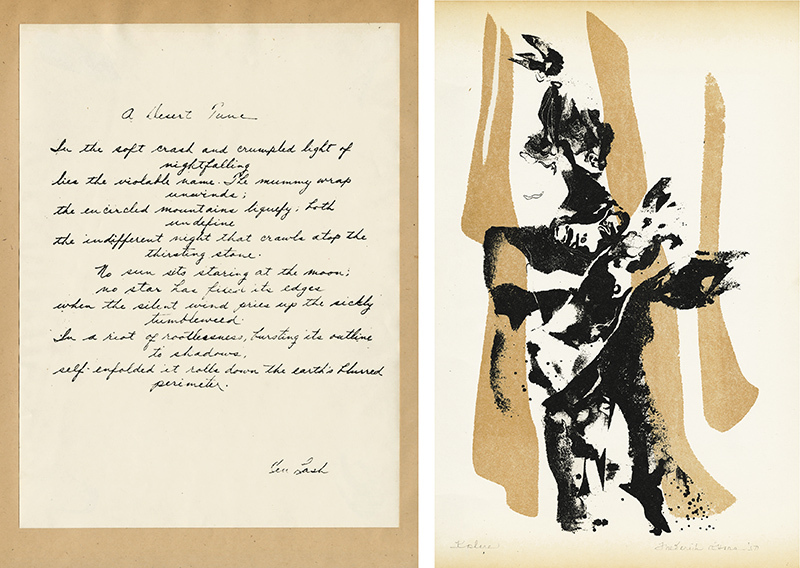 A Desert Tune
In the soft crash and crumpled light of
nightfalling
lies the violable name. The mummy wrap
unwinds;
the encircled mountains liquefy; both
undefine
the indifferent night that crawls atop the
thirsting stone.
No sun sits staring at the moon;
no star has fixed its edges
when the silent wind pries up the sickly
tumbleweed.
In a riot of rootlessness, bursting its outline
to shadows,
self-enfolded it rolls down the earth's blurred
perimeter.
Lash